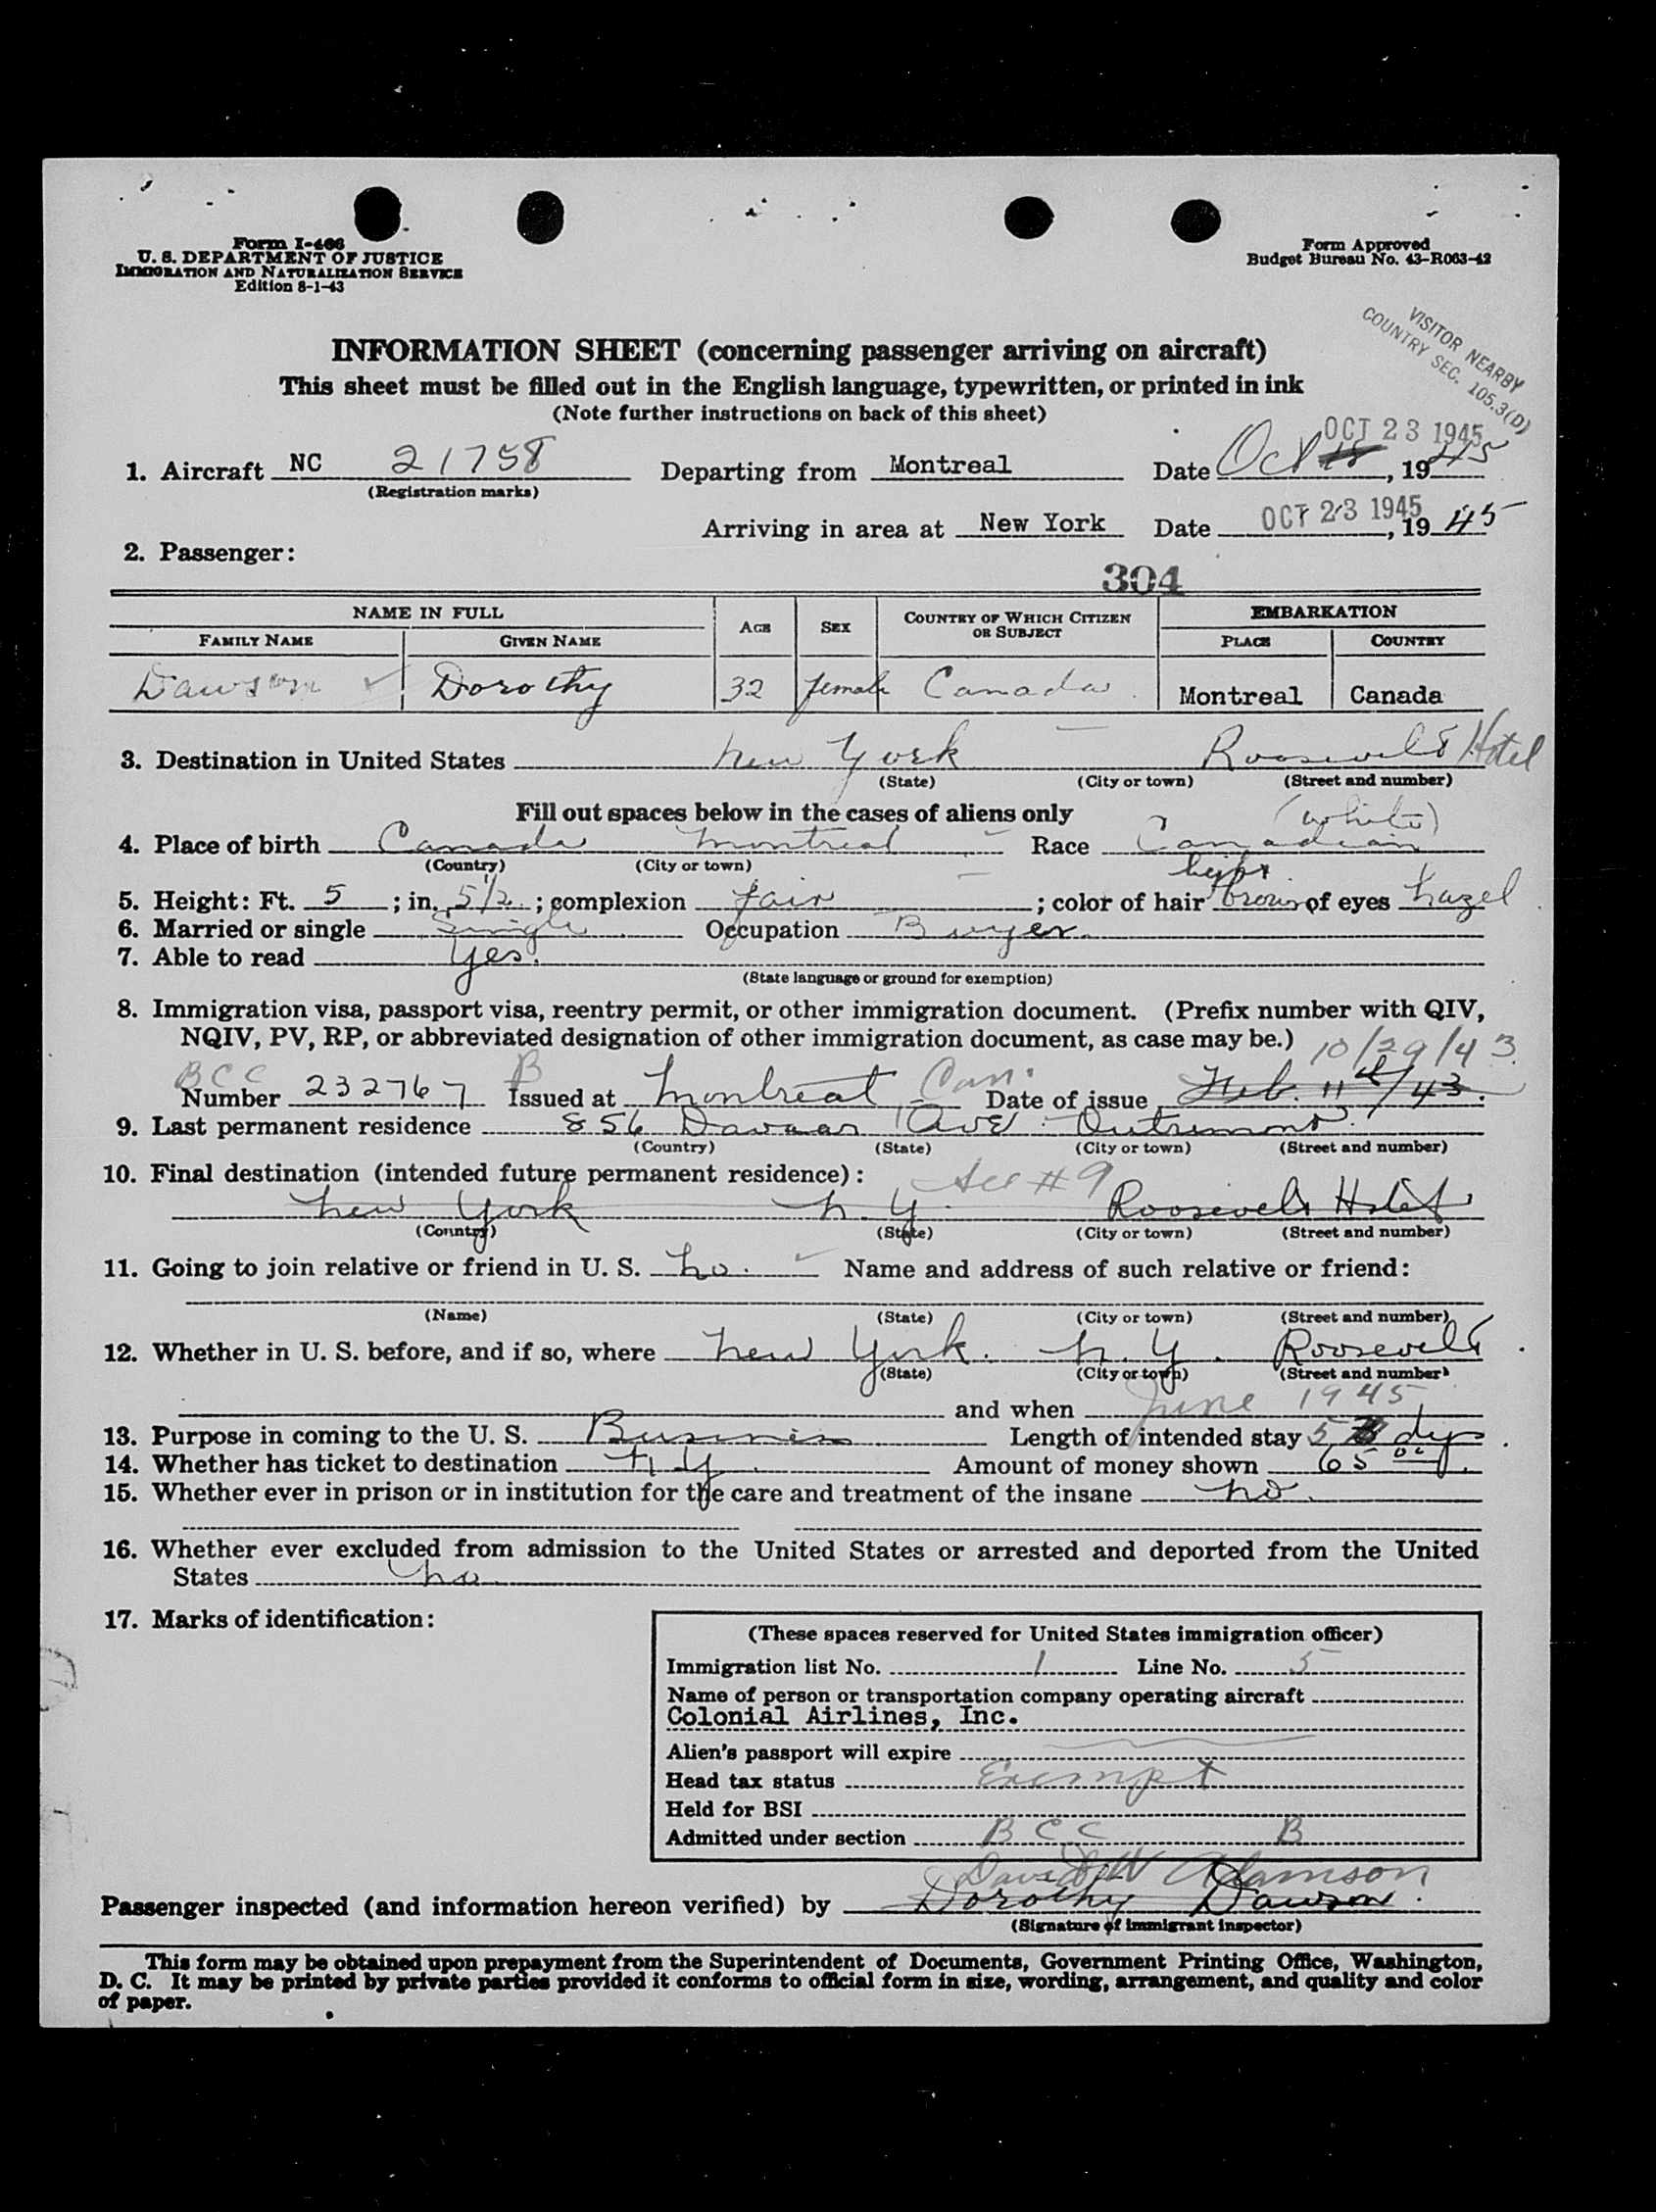 Form I-466
U. S. DEPARTMENT OF JUSTICE
IMMIGRATION AND NATURALIZATION SERVICE
Edition 8-1-43
Form Approved
Budget Bureau No. 43-R063-42
VISITOR NEARBY
COUNTRY SEC. 105.3(D)
INFORMATION SHEET (concerning passenger arriving on aircraft)
This sheet must be filled out in the English language, typewritten, or printed in ink
(Note further instructions on back of this sheet)
OCT 23 1945
1. Aircraft NC 21758 Departing from Montreal Date Oct , 1945
(Registration marks)
Arriving in area at New York Date OCT 23 1945, 1945
2. Passenger:
304
NAME IN FULL AGE SEX COUNTRY OF WHICH CITIZEN OR SUBJECT EMBARKATION
FAMILY NAME GIVEN NAME PLACE COUNTRY
Dawson Dorothy 32 female Canada Montreal Canada
3. Destination in United States New York Roosevelt Hotel
(State) (City or town) (Street and number)
Fill out spaces below in the cases of aliens only
(white)
4. Place of birth Canada Montreal Race Canadian
(Country) (City or town)
light
5. Height: Ft. 5; in. 5 1/2; complexion fair; color of hair brown of eyes hazel
6. Married or single Single Occupation Buyer.
7. Able to read Yes.
(State language or ground for exemption)
8. Immigration visa, passport visa, reentry permit, or other immigration document. (Prefix number with QIV,
NQIV, PV, RP, or abbreviated designation of other immigration document, as case may be.) 10/29/43
BCC B Can.
Number 232767 Issued at Montreal Date of issue Feb. 11th/43.
9. Last permanent residence 856 Davaar Ave. Outremont.
(Country) (State) (City or town) (Street and number)
10. Final destination (intended future permanent residence): See #9
New York N.Y. Roosevelt Hotel
(Country) (State) (City or town) (Street and number)
11. Going to join relative or friend in U. S. No. Name and address of such relative or friend:
(Name) (State) (City or town) (Street and number)
12. Whether in U. S. before, and if so, where New York. N.Y. Roosevelt
(State) (City or town) (Street and number)
and when June 1945
13. Purpose in coming to the U. S. Business Length of intended stay 5 dys.
14. Whether has ticket to destination N.Y. Amount of money shown 65 00
15. Whether ever in prison or in institution for the care and treatment of the insane no.
16. Whether ever excluded from admission to the United States or arrested and deported from the United
States no.
17. Marks of identification:
(These spaces reserved for United States immigration officer)
Immigration list No. 1 Line No. 5
Name of person or transportation company operating aircraft
Colonial Airlines, Inc.
Alien's passport will expire
Head tax status Exempt
Held for BSI
Admitted under section BCC B
David W Adamson
Passenger inspected (and information hereon verified) by Dorothy Dawson.
(Signature of immigrant inspector)
This form may be obtained upon prepayment from the Superintendent of Documents, Government Printing Office, Washington,
D. C. It may be printed by private parties provided it conforms to official form in size, wording, arrangement, and quality and color
of paper.